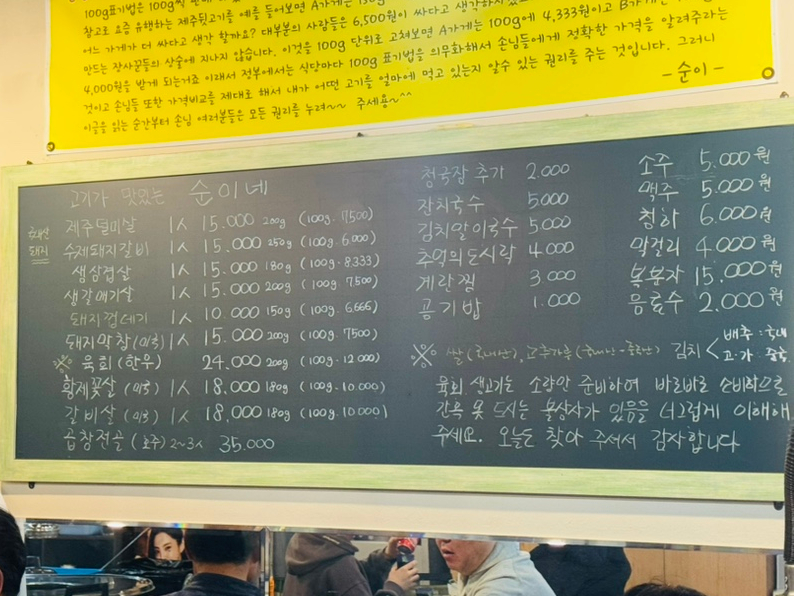 100g표기법은 100g씩
참고로 요즘 유행하는 제주뒷고기를 예를 들어보면 A가게는
어느 가게가 더 싸다고 생각 할까요? 대부분의 사람들은 6,500원이 싸다고
만드는 장사꾼들의 상술에 지나지 않습니다. 이것을 100g 단위로 고쳐보면 A가게는 100g에 4,333원이고 B가게는
4,000원을 받게 되는거죠 이래서 정부에서는 식당마다 100g 표기법을 의무화해서 손님들에게 정확한 가격을 알려주라는
것이고 손님들 또한 가격비교를 제대로 해서 내가 어떤 고기를 얼마에 먹고 있는지 알수 있는 권리를 주는 것입니다. 그러니
이글을 읽는 순간부터 손님 여러분들은 모든 권리를 누려~~ 주세용~^^
- 순이 -
고기가 맛있는 순이네
국내산
돼지
제주덜미살 1人 15.000 200g (100g. 7,500)
수제돼지갈비 1人 15.000 250g (100g. 6,000)
생삼겹살 1人 15.000 180g (100g. 8.333)
생갈매기살 1人 15.000 200g (100g. 7,500)
돼지껍데기 1人 10.000 150g (100g. 6,666)
돼지막창 (미국) 1人 15.000 200g (100g. 7500)
※ 육회 (한우) 24.000 200g (100g. 12.000)
황제꽃살 (미국) 1人 18.000 180g (100g. 10.000)
갈비살 (미국) 1人 18.000 180g (100g. 10.000)
곱창전골 (호주) 2~3人 35.000
청국장 추가 2.000
잔치국수 5000
김치말이국수 5.000
추억의도시락 4.000
계란찜 3.000
공기밥 1.000
소주 5.000원
맥주 5.000원
청하 6.000원
막걸리 4.000원
복분자 15.000원
음료수 2.000원
※ 쌀(국내산), 고추가루(국내산-중국산) 김치 < 배추 : 국내
고.가 : 중국
육회 생고기는 소량만 준비하여 바로바로 소비함으로
간혹 못 드시는 불상사가 있음을 너그럽게 이해해
주세요. 오늘도 찾아 주셔서 감사합니다